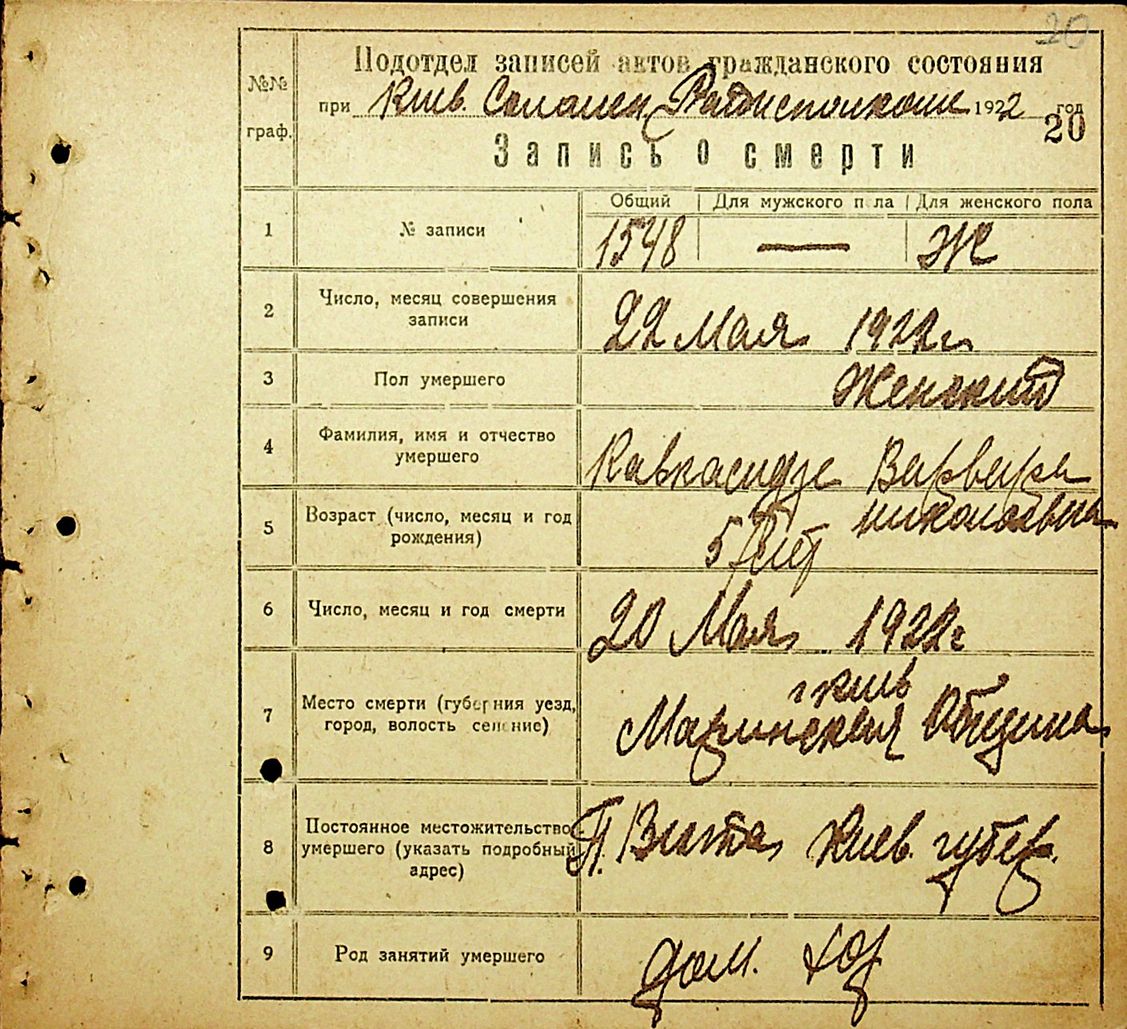 20
Подотдел записей актов гражданского состояния
№№ граф.
при Киев. Соломен. 1922 год
20
Запись о смерти
Общий Для мужского пола Для женского пола
1 № записи 1548 — Ж
2 Число, месяц совершения
записи 22 Мая 1922 г.
3 Пол умершего Женский
4 Фамилия, имя и отчество
умершего Кавкасидзе Варвара
Николаевна
5 Возраст (число, месяц и год
рождения) 57 лет
6 Число, месяц и год смерти 20 Мая 1922 г
7 Место смерти (губерния уезд,
город, волость селение) г Киев
Мариинская Община
8 Постоянное местожительство
умершего (указать подробный
адрес) Киев. губер.
9 Род занятий умершего дом. хоз